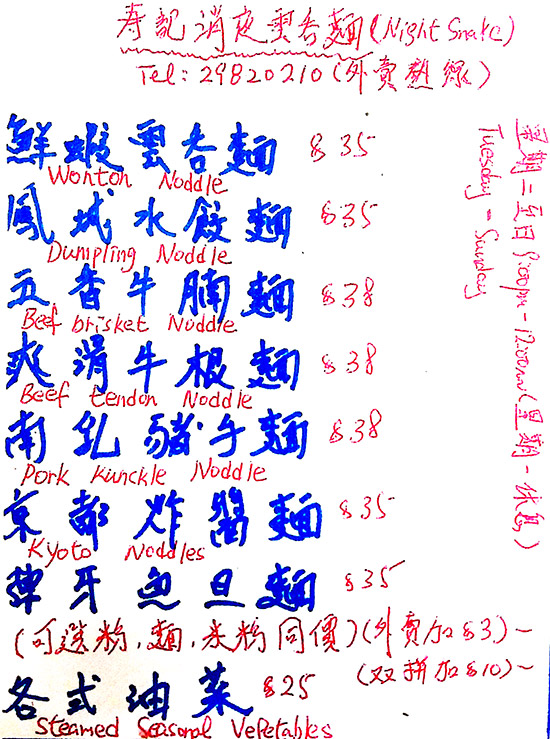 寿記消夜雲吞麵(Night Snake)
Tel: 29820210(外賣熱線)
鮮蝦雲吞麵 $35
Wonton Noddle
鳳城水餃麵 $35
Dumpling Noddle
五香牛腩麵 $38
Beef brisket Noddle
爽滑牛根麵 $38
Beef tendon Noddle
南乳豬手麵 $38
Pork kunckle Noddle
京都炸醬麵 $35
Kyoto Noddles
彈牙魚旦麵 $35
(可選粉,麵,米粉同價)(外賣加$3)
(双拼加$10)
各式油菜 $25
Steamed Seasonal Vepetables
星期二至日 9:00pm-12:00am(星期一休息)
Tuesday - Sunday